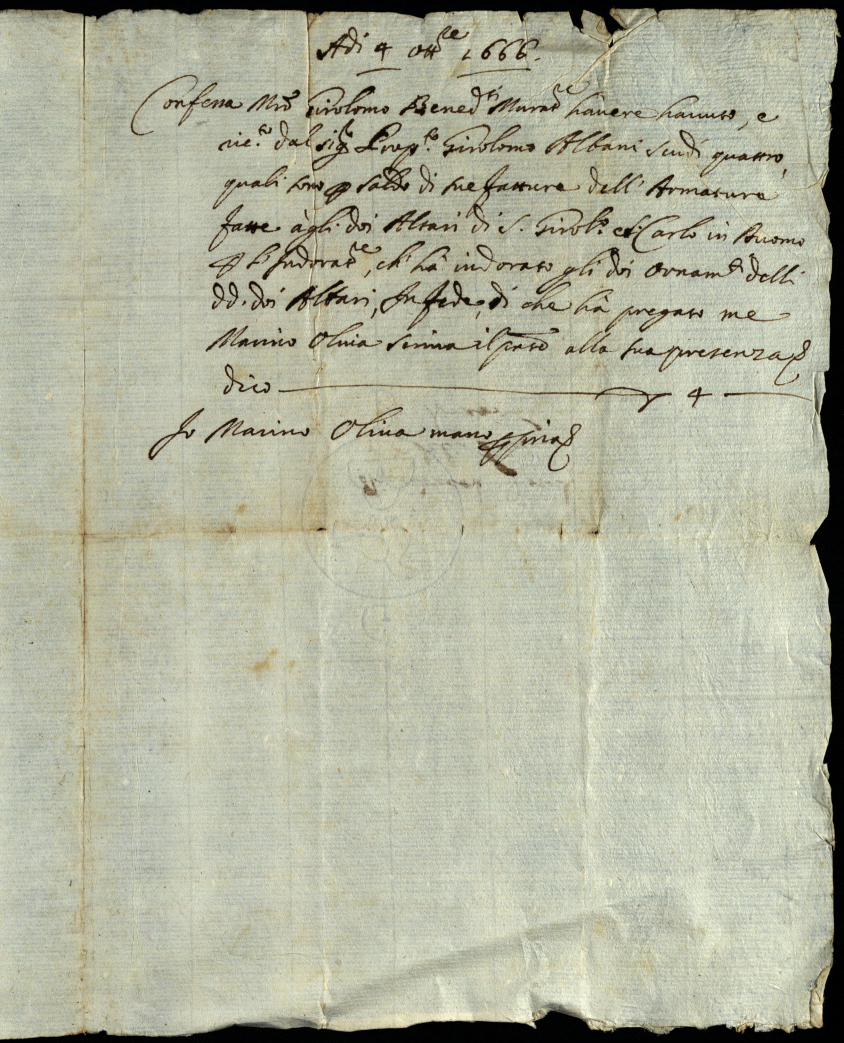 Adi 4 ott.re 1666.
Confessa Mro Girolomo Bened.ti Murat.re havere havuto, e
ric.to dal sig.r Prep.to Girolomo Albani scudi quattro,
quali sono p saldo di sue fatture dell'Armature
fatte agli doi Altari di S. Girol.o e S. Carlo in Duomo
p l'Indorat.re, ch'hà indorato gli doi ornam.ti delli
dd. doi Altari, In fede di che hà pregato me
Marino Oliva scriva il pnte alla sua presenza
dico 4
Io Marino Oliva mano ppria